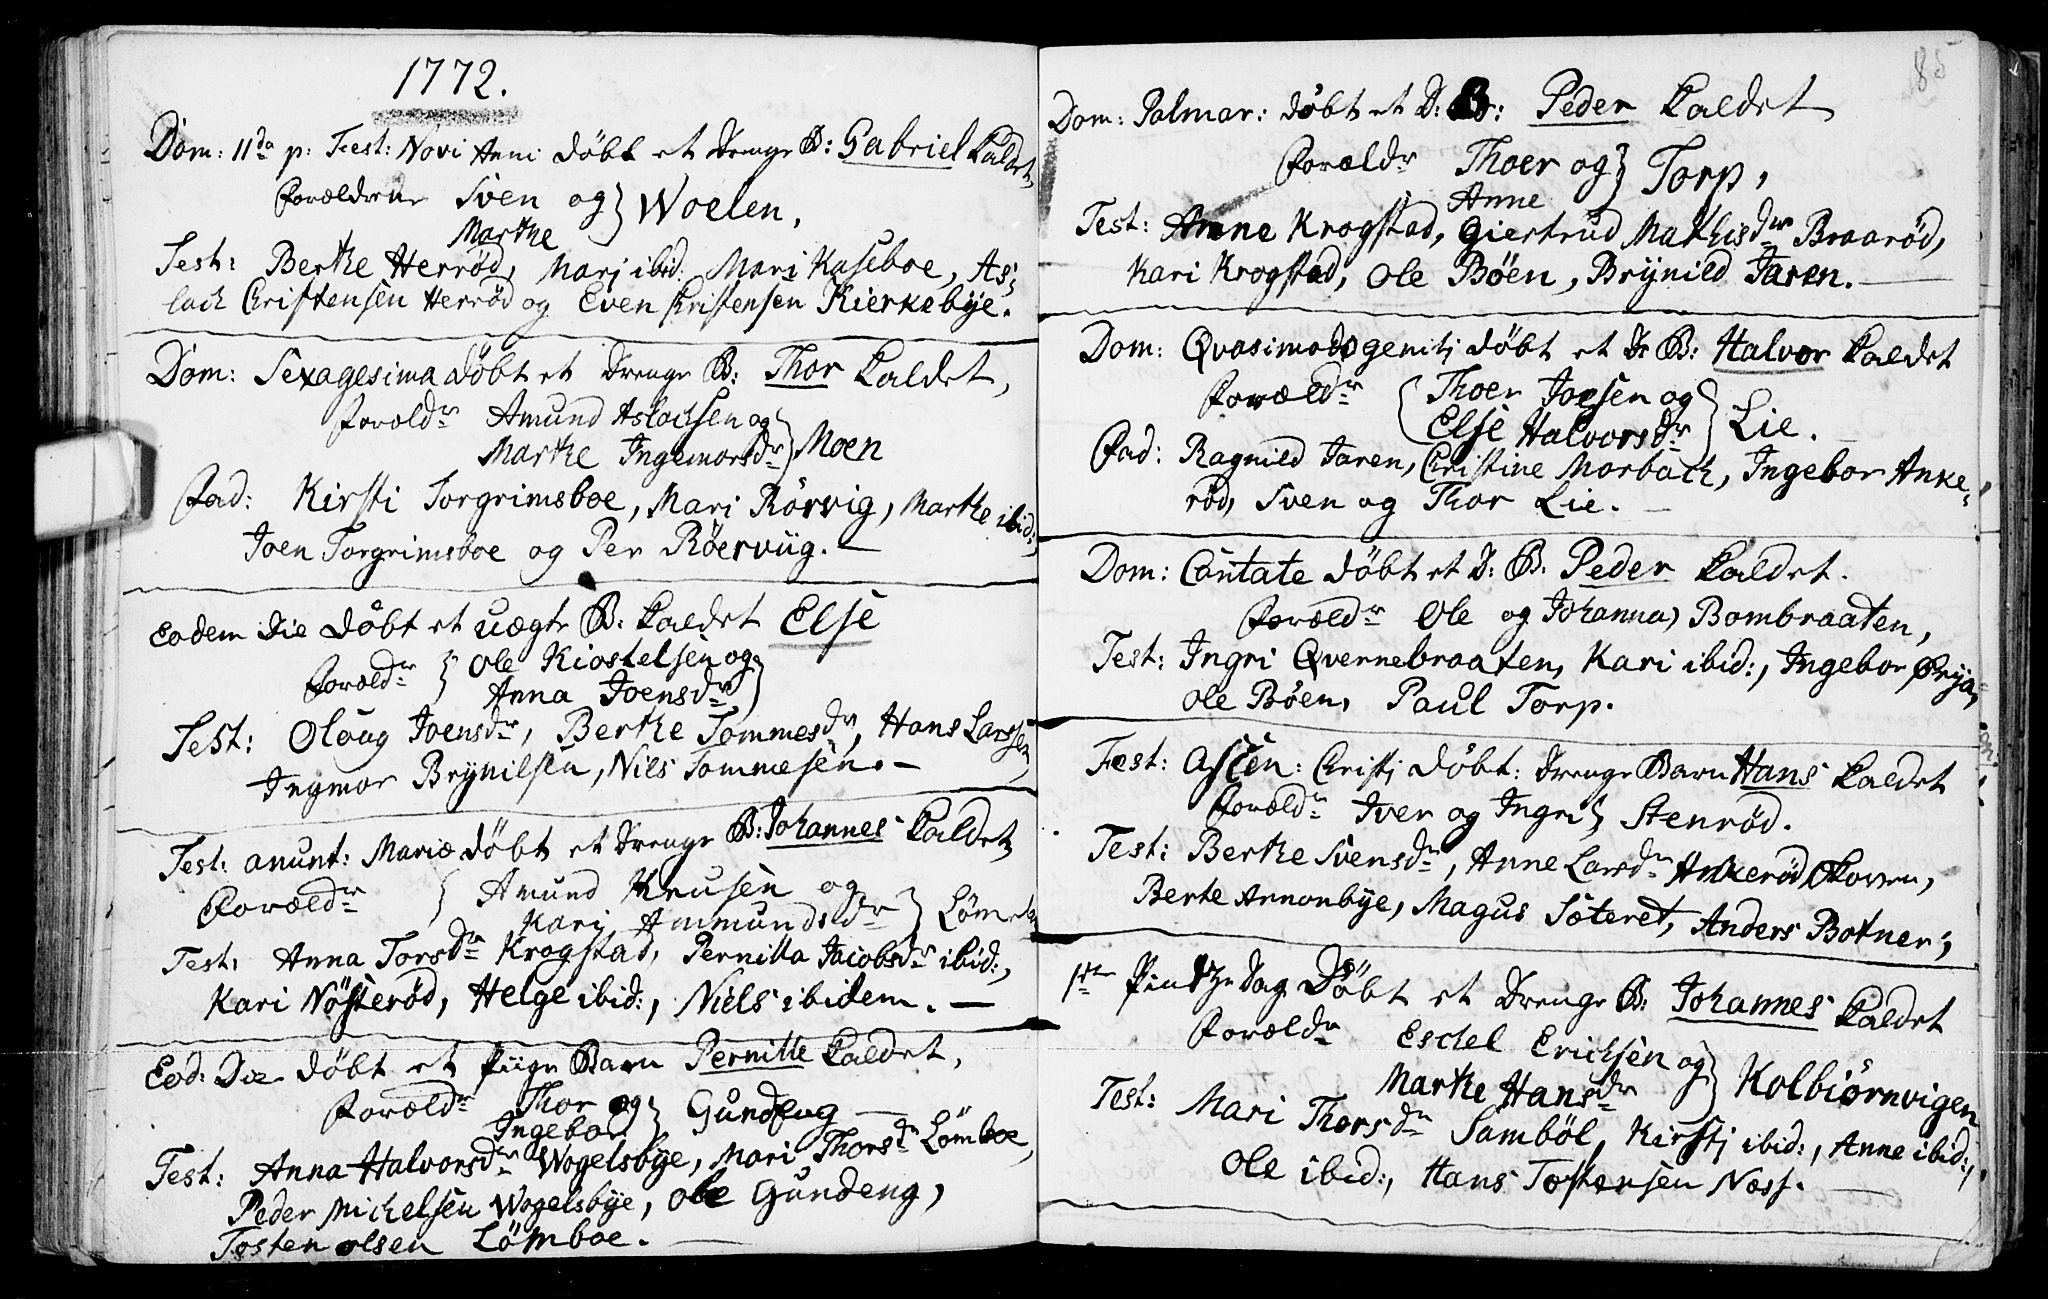 1772.
Dom: 11da p: Fest: Novi Anni döbt et Drenge B: Gabriel kaldet,
Forældrene Sven og } Woelen,
Marthe
Test: Berthe Herröd, Marj ibid. Mari Kaseboe, As-
lach Christensen Herröd og Even Christensen Kierkebÿe.
Dom: Sexagesima döbt et Drenge B: Thor kaldet,
Foræld.r Amund Aslachsen og
Marthe Ingemorsd.r } Moen
Fad: Kirsti Torgrimsboe, Mari Rörvig, Marthe ibid:,
Joen Torgrimsboe og Per Röervüg. —
Eodem Die döbt et uægte B: kaldet Else
Foræld.r } Ole Kiostelsen og
Anna Joensd.r }
Test: Oloug Joensd.r, Berthe Tommesd.r, Hans Larssen,
Ingmor Brÿnilsen, Niels Tommesen. —
Fest: anunt: Mariæ döbt et Drenge B: Johannes kaldet,
Foræld.r } Amund Knusen og
Kari Ammundsd.r }
Test: Anna Torsd.r Krogstad, Pernilla Jacobsd.r ibid:,
Kari Nösteröd, Helge ibid:, Niels ibidem. —
Eod: Die döbt et Piige Barn Pernille kaldet,
Foræld.r Thor og } Gundeng —
Ingebor
Test: Anna Halvorsd.r Wogelsbÿe, Mari Thorsd.r Lömboe,
Peder Michelsen Wogelsbÿe, Ole Gundeng,
Tosten Olsen Lömboe. —
85
Dom: Palmar: döbt et D: B: Peder kaldet
Foræld.r Thoer og } Torp,
Anne
Test: Anne Krogstad, Giertrud Mathisd.r Braaröd,
Kari Krogstad, Ole Böen, Brÿnild Jaren. —
Dom: Qvasimodogenitj döbt et Dr B: Halvor kaldet
Foræld.r { Thoer Joesen og
Else Halvorsd.r } Lie.
Fad: Ragnild Jaren, Christine Morbach, Ingebor Anke-
röd, Sven og Thor Lie. —
Dom: Cantate döbt et D: B. Peder kaldet.
Foræld.r Ole og Johanna Bombraaten,
Test: Ingri Qvernebraaten, Kari ibid:, Ingebor
Ole Böen, Paul Torp.
Fest: Ascen: Christj döbt: Drenge Barn Hans kaldet
Foræld.r Iver og Ingri } Stenröd.
Test: Berthe Svensd.r, Anne Larsd.r Ankeröd Skoven,
Berte Annonbÿe, Magus Sæteret, Anders Botner,
1ste Pindtze Dag Döbt et Drenge B: Johannes kaldet
Foræld.r Eschel Erichsen og
Marthe Hansd.r } Kolbiörnvigen
Test: Mari Thorsd.r Samböl, Kirstj ibid:, Anne ibid:,
Ole ibid:, Hans Tostensen Næss. —